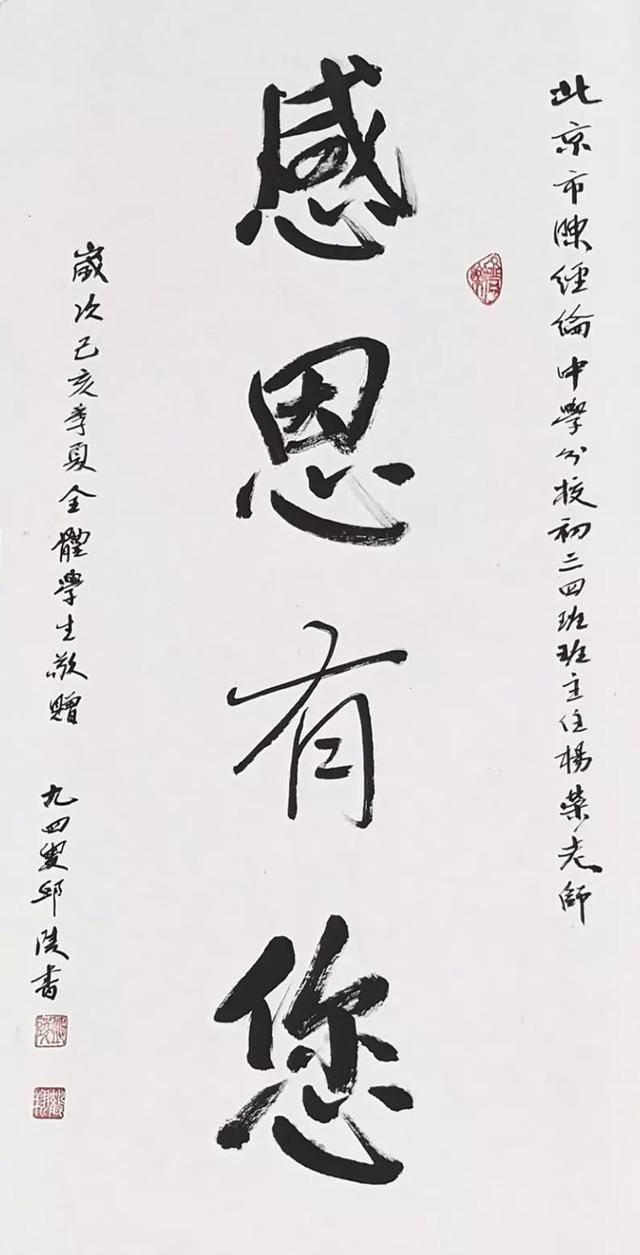 北京市陳經綸中學分校初三四班班主任楊榮老師
感恩有您
歲次己亥季夏全體學生敬贈
九四叟邱陵書